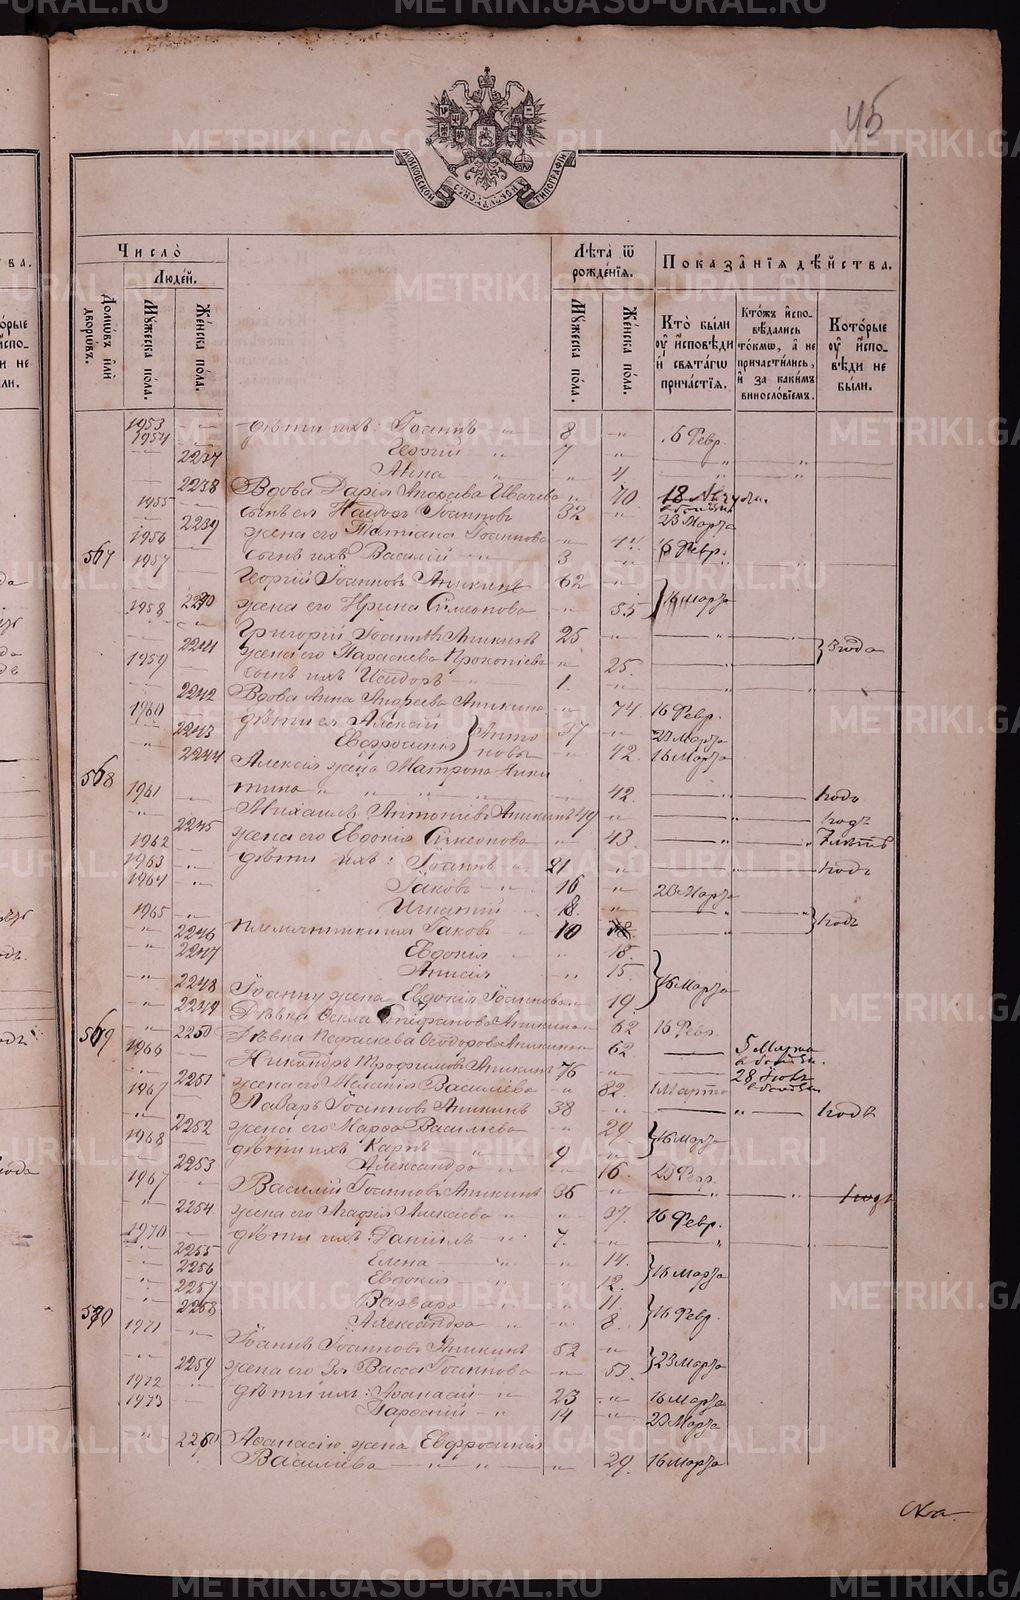 45
МОСКОВСКОЙ СѴНОДАЛЬНОЙ ТИПОГРАФІИ
Число̀
Людей.
Домѡвъ или дворѡвъ.
Мꙋжеска пола.
Женска пола.
Лѣта ѿ рожденїѧ.
Мꙋжеска пола.
Женска пола.
Показанїѧ дѣйства.
Кто были оу исповѣди и свѧтагѡ причастїѧ.
Ктожъ исповѣдались токмѡ, а не причастились, и за какимъ винословїемъ.
Которые оу исповѣди не были.
1953 дѣти ихъ: Іоаннъ 8 16 Февр.
1954 Георгій 7
2237 Анна 4
2238 Вдова Дарія Андреева Ивачева 70 18
1955 сынъ ея Исидоръ Іоанновъ 32 23 Марта
2239 жена его Татіана Іоаннова 44 16 Февр.
1956 сынъ ихъ Василій 3
567 1957 Георгій Іоанновъ Аникинъ 62
2240 жена его Ирина Симеонова 55 } 16 Марта
1958 Григорій Іоанновъ Аникинъ 25
2241 жена его Параскева Прокопіева 25 } 3 года
1959 сынъ ихъ Исидоръ 1
2242 Вдова Анна Андреева Аникина 74 16 Февр.
1960 дѣти ея Алексій 37 23 Марта
2243 Евфросинія } Антоновы 42 16 Марта
2244 Алексія жена Матрона Никитина 42 годъ
568 1961 Михаилъ Антоніевъ Аникинъ 49 годъ
2245 жена его Евдокія Симеонова 43 7 лѣтъ
1962 дѣти ихъ: Іоаннъ 21 годъ
1963 Іаковъ 16 23 Марта
1964 Игнатій 8
1965 племянники им Іаковъ 10 } годъ
2246 Евдокія 18
2247 Анисія 15 } 16 Марта
2248 Іоанну жена Евдокія Іоаннова 19
2249 Дѣвка Ѳекла Епифанова Аникина 62 16 Февр.
2250 Дѣвка Параскева Ѳеодорова Аникина 62 5 Марта
569 1966 Никандръ Трофимовъ Аникинъ 76 28
2251 жена его Меланія Василіева 82 Марта
1967 Лаваръ Іоанновъ Аникинъ 38 годъ
2252 жена его Марѳа Василіева 29 } 16 Марта
1968 дѣти ихъ Карпъ 9
2253 Александра 16 23 Февр.
1967 Василій Іоанновъ Аникинъ 36 1 годъ
2254 жена его Агафія Алексіева 37 16 Февр.
1970 дѣти ихъ Даніилъ 7
2255 Елена 14
2256 Евдокія 12 } 16 Марта
2257 Варвара 11
2258 Александра 8 } 16 Февр.
570 1971 Іоаннъ Іоанновъ Аникинъ 52
2259 жена его Васса Іоаннова 53 } 23 Марта
1972 дѣти ихъ: Аѳанасій 23 16 Марта
1973 14 23 Марта
2260 Аѳанасію жена Евфросинія
Василіева 29 16 Марта
METRIKI.GASO-URAL.RU